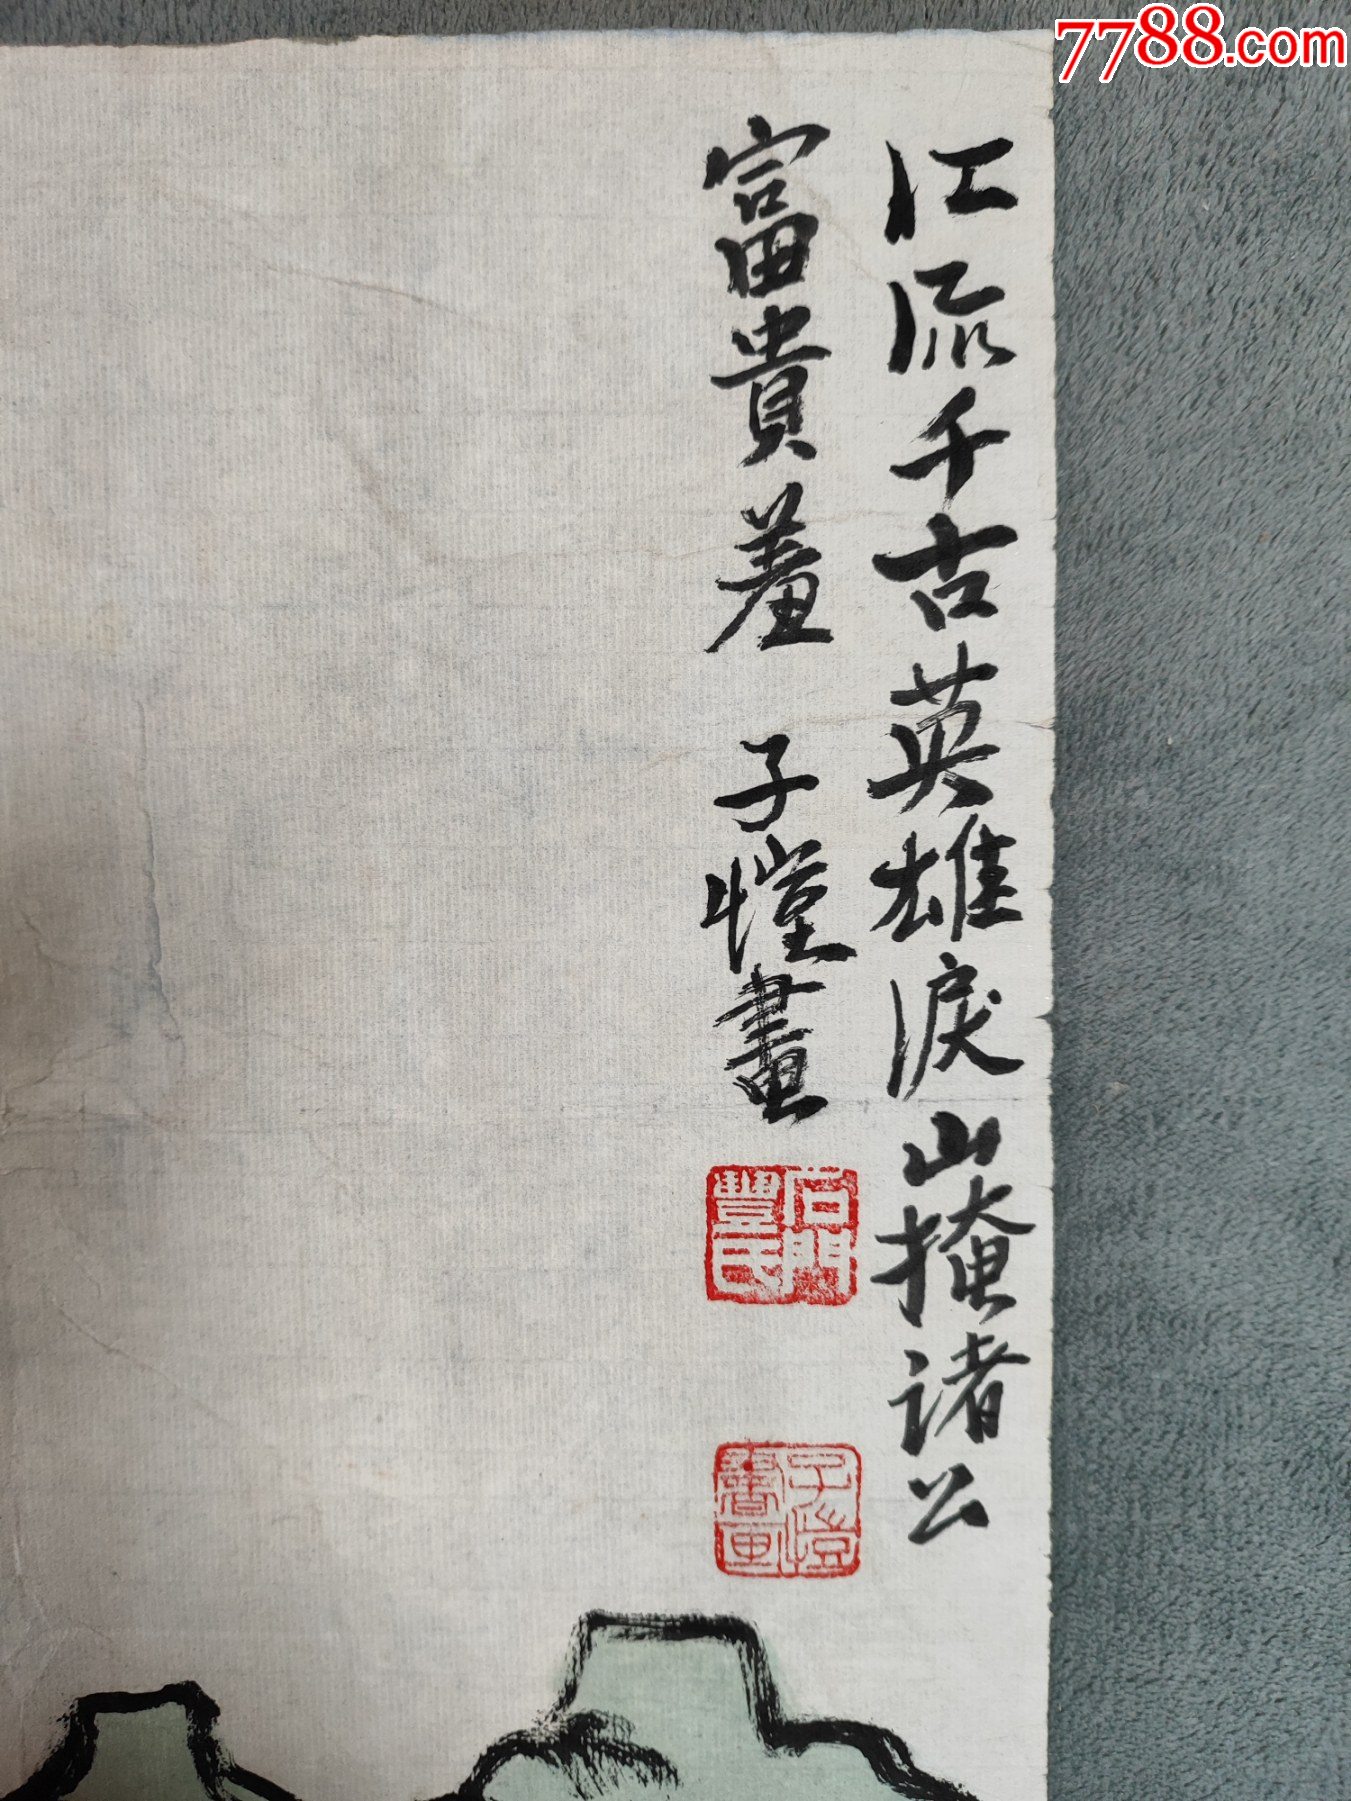 7788.com
江流千古英雄淚山掩諸公
富貴羞 子愷畫
石門豐氏
子愷書画